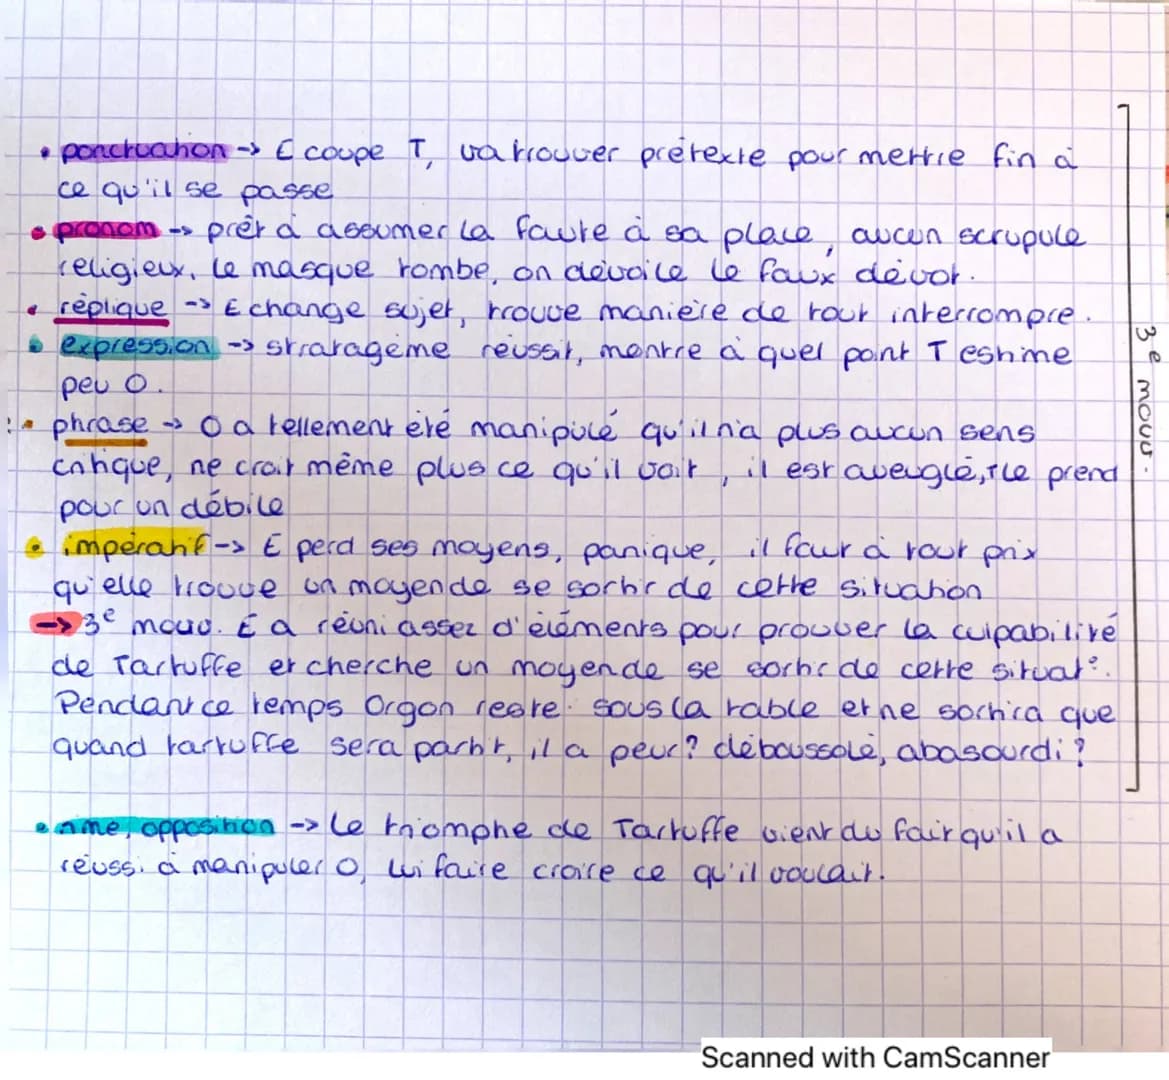 • ponctuation -> E coupe T, va trouver prétexte pour mettre fin à
ce qu'il se passe
• pronom -> prêt à assumer la faute à sa place, aucun scrupule
religieux. Le masque tombe, on dévoile le faux dévot.
• réplique -> E change sujet, trouve manière de tout interrompre.
• expression -> stratagème réussit, montre à quel point T estime
peu O.
• phrase -> O a tellement été manipulé qu'il n'a plus aucun sens
critique, ne croit même plus ce qu'il voit, il est aveuglé, T le prend
pour un débile
• impératif -> E perd ses moyens, panique, il faut à tout prix
qu'elle trouve un moyen de se sortir de cette situation
-> 3e mouv. E a réuni assez d'éléments pour prouver la culpabilité
de Tartuffe et cherche un moyen de se sortir de cette situat°.
Pendant ce temps Orgon reste sous la table et ne sortira que
quand tartuffe sera partit, il a peur? déboussolé, abasourdi?
• rime, opposition -> Le triomphe de Tartuffe vient du fait qu'il a
réussi à manipuler O, lui faire croire ce qu'il voulait.
3e mouv.
Scanned with CamScanner